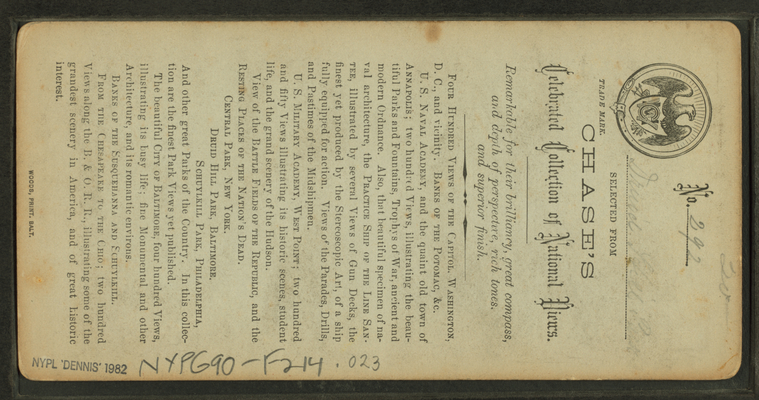 No. 292
TRADE MARK.
SELECTED FROM
CHASE'S
Celebrated Collection of National Views.
Remarkable for their brilliancy, great compass,
and depth of perspective, rich tones,
and superior finish.
FOUR HUNDRED VIEWS OF THE CAPITOL, WASHINGTON,
D. C., and vicinity. BANKS OF THE POTOMAC, &c.
U. S. NAVAL ACADEMY, and the quaint old town of
ANNAPOLIS; two hundred Views, illustrating the beau-
tiful Parks and Fountains, Trophys of War, ancient and
modern Ordnance. Also, that beautiful specimen of na-
val architecture, the PRACTICE SHIP OF THE LINE SAN-
TEE, illustrated by several Views of Gun Decks, the
finest yet produced by the Stereoscopic Art, of a ship
fully equipped for action. Views of the Parades, Drills,
and Pastimes of the Midshipmen.
U. S. MILITARY ACADEMY, WEST POINT; two hundred
and fifty Views illustrating its historic scenes, student
life, and the grand scenery of the Hudson.
View of the BATTLE FIELDS OF THE REPUBLIC, and the
RESTING PLACES OF THE NATION'S DEAD.
CENTRAL PARK, NEW YORK,
DRUID HILL PARK, BALTIMORE,
SCHUYLKILL PARK, PHILADELPHIA,
And other great Parks of the Country. In this collec-
tion are the finest Park Views yet published.
The beautiful CITY OF BALTIMORE, four hundred Views,
illustrating its busy life; fine Monumental and other
Architecture, and its romantic environs.
BANKS OF THE SUSQUEHANNA AND SCHUYLKILL.
FROM THE CHESAPEAKE TO THE OHIO; two hundred
Views along the B. & O. R. R., illustrating some of the
grandest scenery in America, and of great historic
interest.
WOODS, PRINT, BALT.
NYPL 'DENNIS' 1982
NYPG90-F214.023